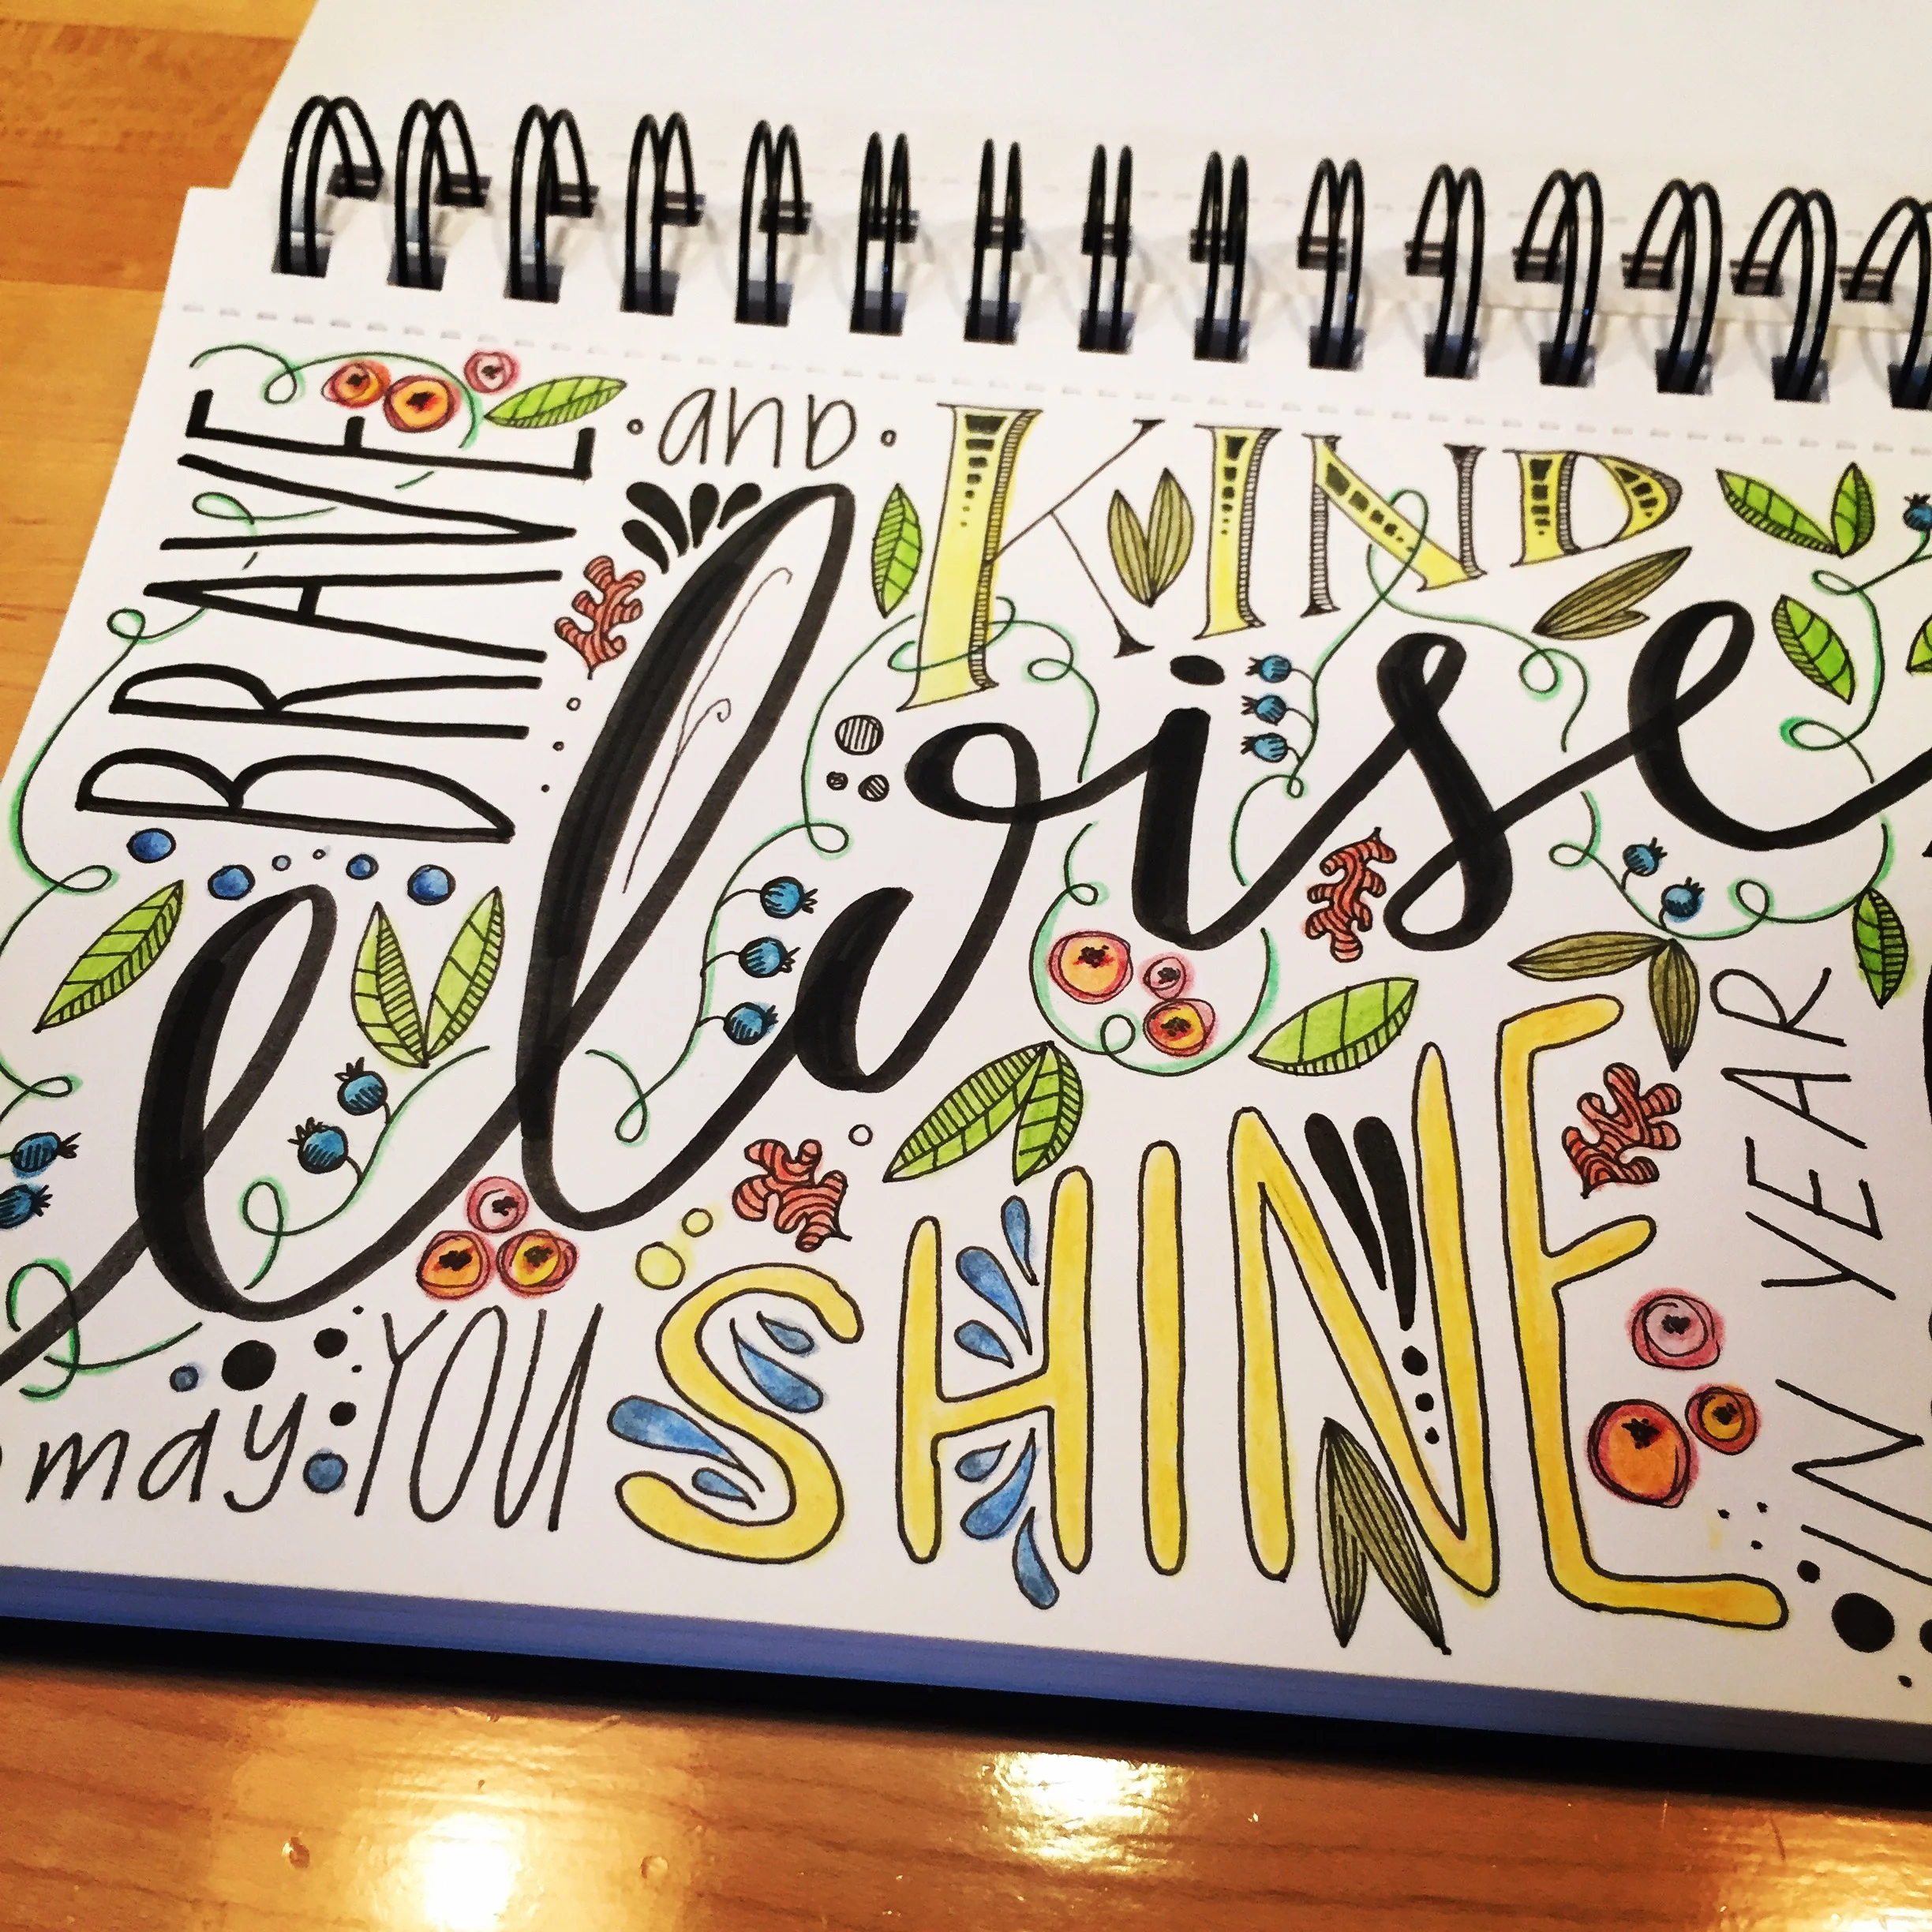 BRAVE
and
KIND
eloise
may YOU SHINE
IN YEAR